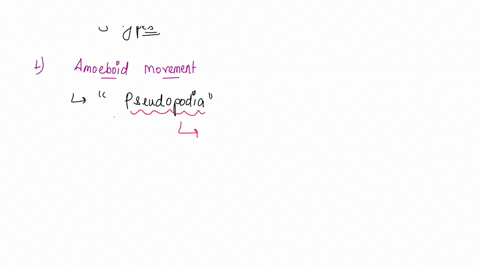 Types
1) Amoeboid movement
↳ " Pseudopodia"
↳